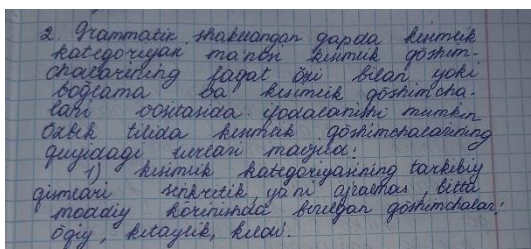 2. Grammatik shakllangan gapda kesimlik
kategoriyak ma'nosi kesimlik qóshim-
chalarining faqat ózi bilan yoki
boglama va kesimlik qóshimcha-
lari vositasida ifodalanishi mumkin
Ózbek tilida kesimlik qóshimchalarining
quyidagi turlari mavjud:
1) kesimlik kategoriyasining tarkibiy
qismlari sinkretik, ya'ni ajralmas, bitta
moddiy kórinishda berilgan qóshimchalar:
óqiy, ketaylik, kelow.